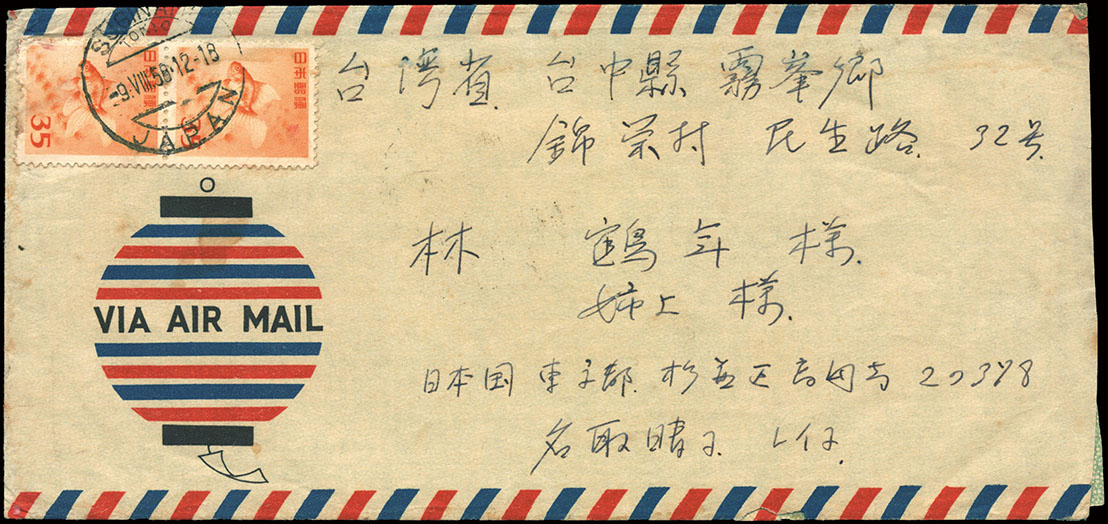 JAPAN
-9.VIII.58.12-18
日本郵便
35
日本郵便
VIA AIR MAIL
台湾省 台中縣 霧峯鄉
錦栄村 民生路 32号
林 鶴年 様
姉上 様
日本国 東京都 杉並区
名取晴子